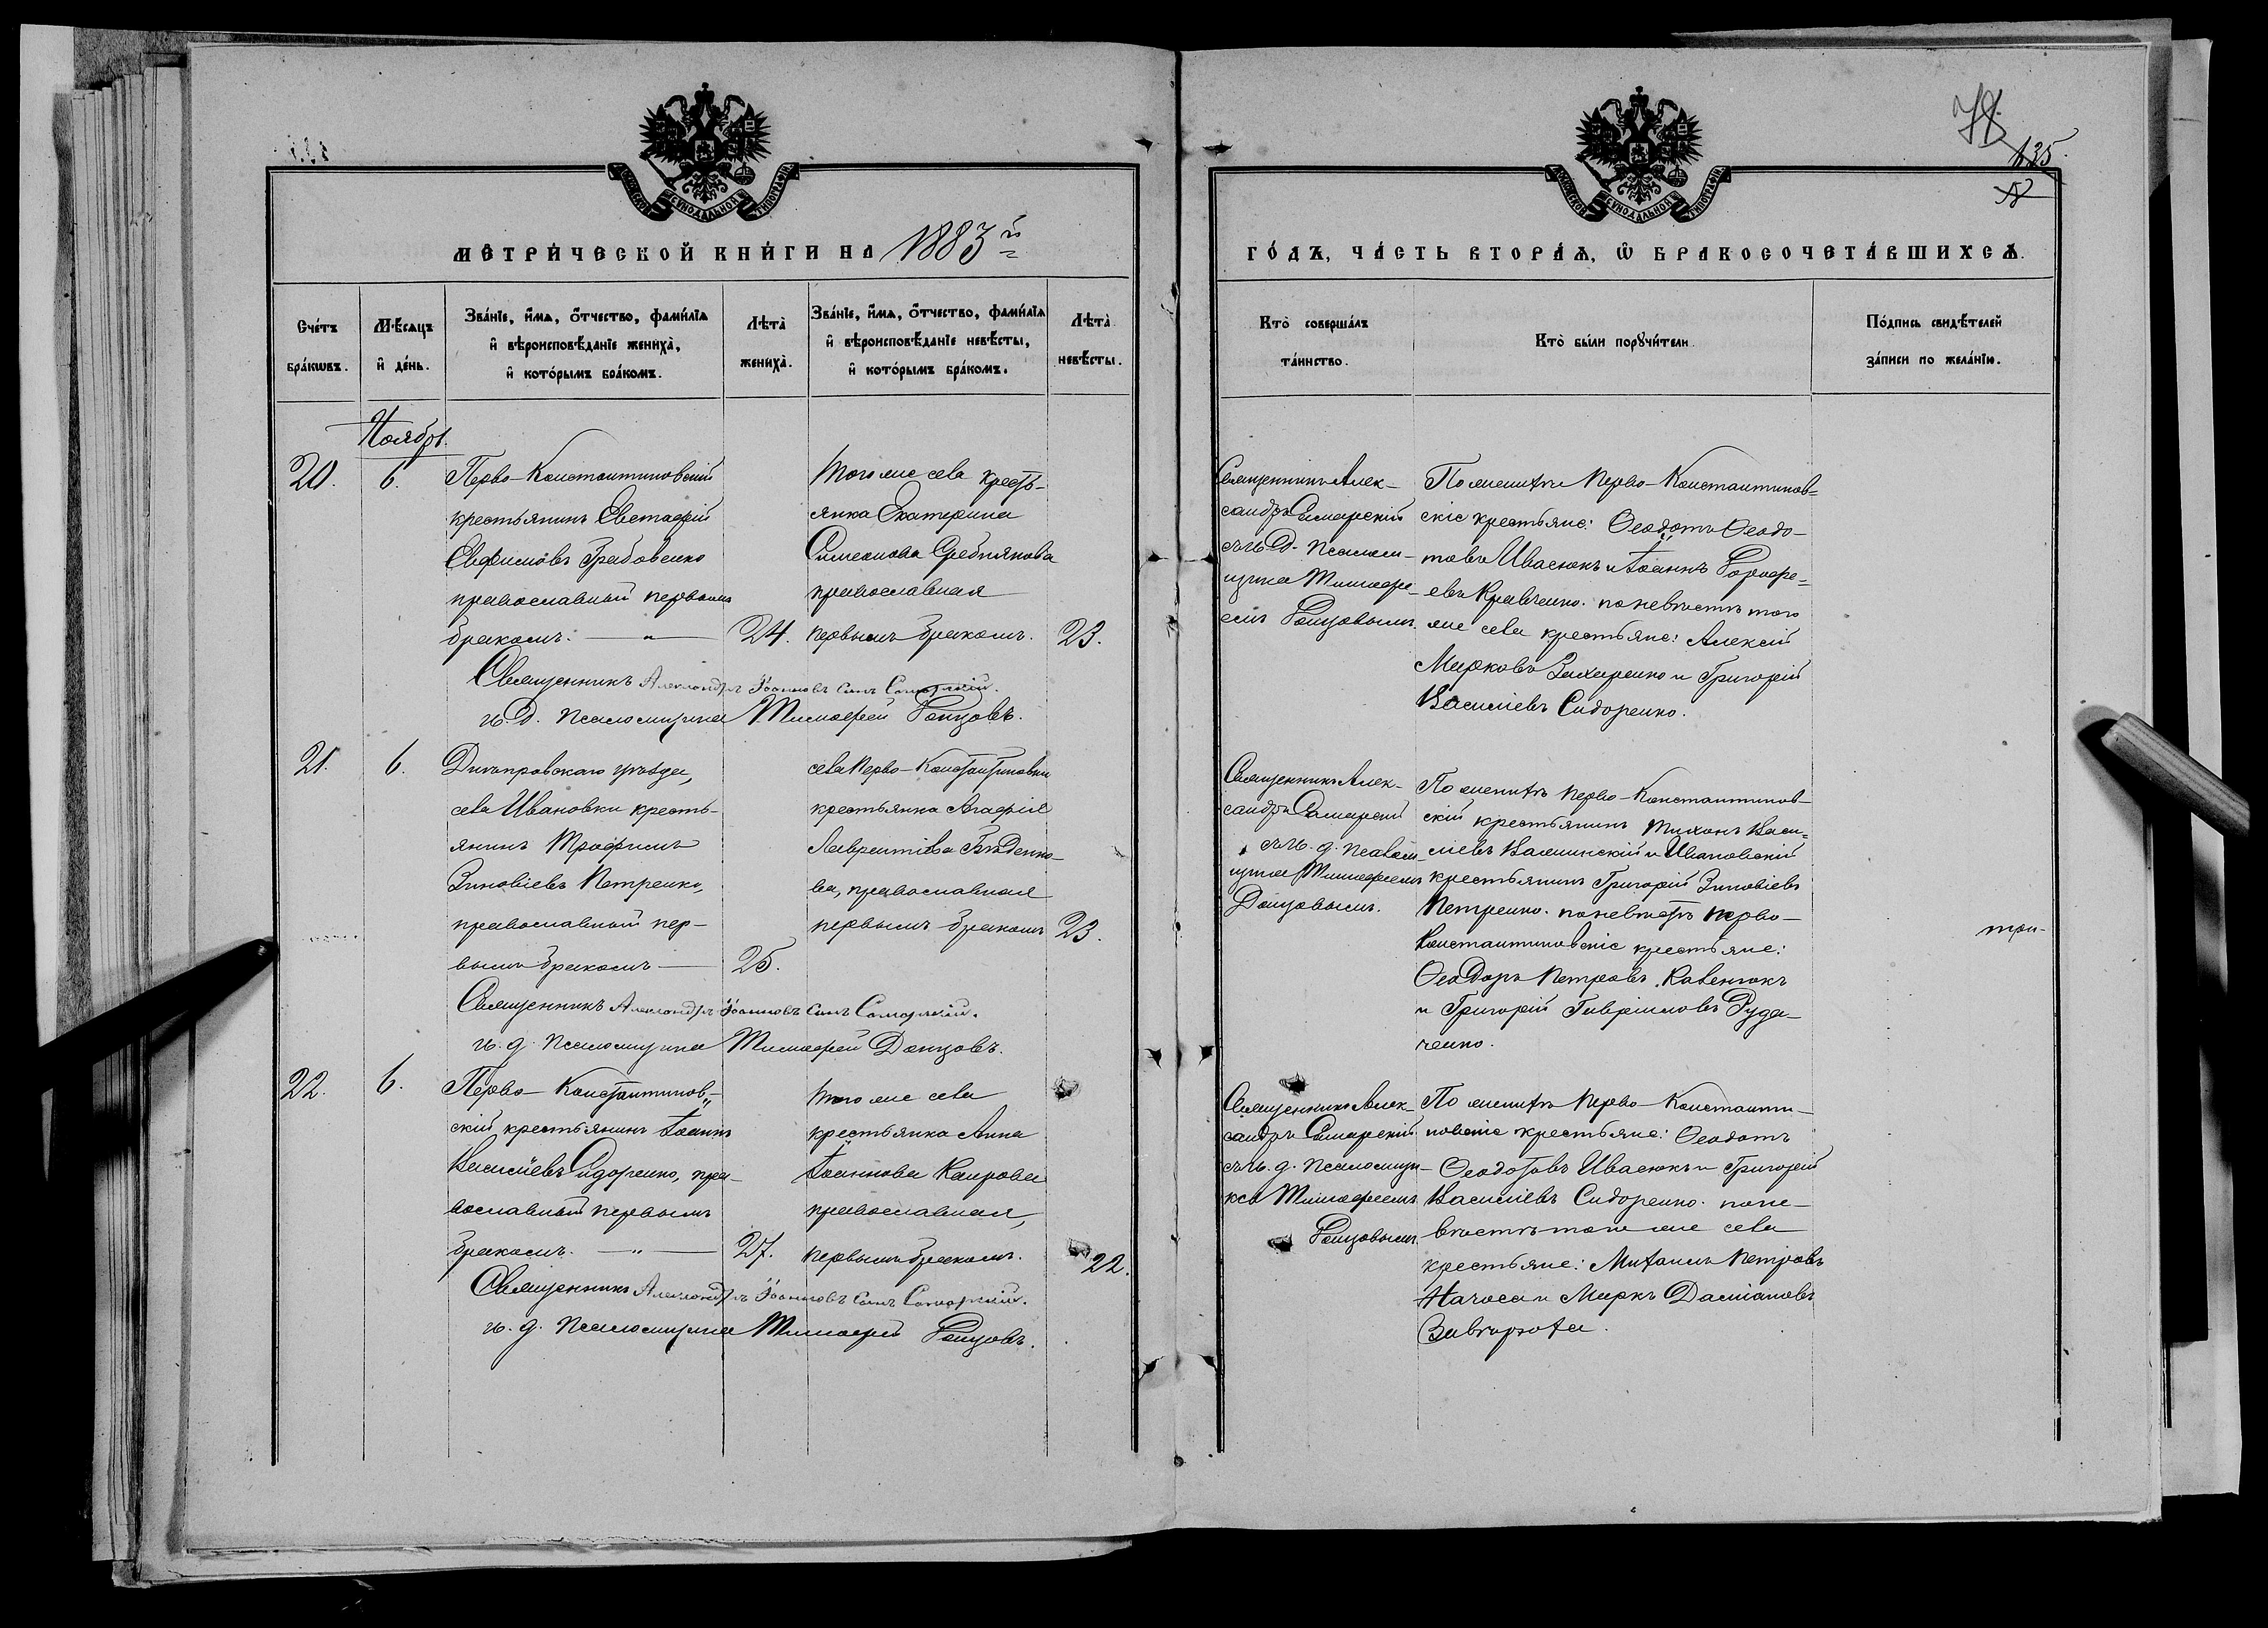 78
135.
МОСКОВСКОЙ СѴНОДАЛЬНОЙ ТИПОГРАФІИ
МЕТРИЧЕСКОЙ КНИГИ НА 1883й
Счетъ браковъ.
Мѣсяцъ и день.
Званіе, имя, отчество, фамилія и вѣроисповѣданіе жениха, и которымъ бракомъ.
Лѣта жениха.
Званіе, имя, отчество, фамилія и вѣроисповѣданіе невѣсты, и которымъ бракомъ.
Лѣта невѣсты.
Ноябрь.
20.
6.
Перво-Константиновскій
крестьянинъ Евстафій
Евфимовъ Грабовенко
православный первымъ
бракомъ. — " —
24.
того же села кресть-
янка Екатерина
Симеонова Гребникова
православная
первымъ бракомъ.
23.
Священникъ Александръ Іоанновъ сынъ Самарскій.
и. д. псаломщика Тимофей Донцовъ.
21.
6.
Днѣпровскаго уѣзда,
села Ивановки кресть-
янинъ Трофимъ
Зиновіевъ Петренко,
православный пер-
вымъ бракомъ —
25.
села Перво-Константиновки
крестьянка Агафія
Лаврентіева Бѣденко-
ва, православная
первымъ бракомъ
23.
Священникъ Александръ Іоанновъ сынъ Самарскій.
и. д. псаломщика Тимофей Донцовъ.
22.
6.
Перво-Константинов-
скій крестьянинъ Іоаннъ
Василіевъ Сидоренко, пра-
вославный первымъ
бракомъ. — " —
27.
того же села
крестьянка Анна
Іоаннова Каирова
православная,
первымъ бракомъ.
22.
Священникъ Александръ Іоанновъ сынъ Самарскій.
и. д. псаломщика Тимофей Донцовъ.
МОСКОВСКОЙ СѴНОДАЛЬНОЙ ТИПОГРАФІИ
ГОДЪ, ЧАСТЬ ВТОРАЯ, Ѡ БРАКОСОЧЕТАВШИХСЯ.
Кто совершалъ таинство.
Кто были поручители.
Подпись свидѣтелей записи по желанію.
Священникъ Алек-
сандръ Самарскій
съ и. д. псалом-
щика Тимофе-
емъ Донцовымъ.
По женихѣ Перво-Константинов-
скіе крестьяне: Ѳеодотъ Ѳеодо-
товъ Ивасюкъ и Іоаннъ Дороѳе-
евъ Кравченко. по невѣстѣ того
же села крестьяне: Алексій
Марковъ Захаренко и Григорій
Василіевъ Сидоренко.
Священникъ Алек-
сандръ Самарскій
съ и. д. псалом-
щика Тимофеемъ
Донцовымъ.
По женихѣ Перво-Константинов-
скій крестьянинъ Тихонъ Васи-
ліевъ Калинскій и Ивановскій
крестьянинъ Григорій Зиновіевъ
Петренко. по невѣстѣ Перво-
Константиновскіе крестьяне:
Ѳеодоръ Петровъ Кавенюкъ
и Григорій Гавріиловъ Руда-
ченко.
три-
Священникъ Алек-
сандръ Самарскій
съ и. д. псаломщи-
ка Тимофеемъ
Донцовымъ.
По женихѣ Перво-Константи-
новскіе крестьяне: Ѳеодотъ
Ѳеодотовъ Ивасюкъ и Григорій
Василіевъ Сидоренко. по не-
вѣстѣ того же села
крестьяне: Михаилъ Петровъ
Начоса и Маркъ Даміановъ